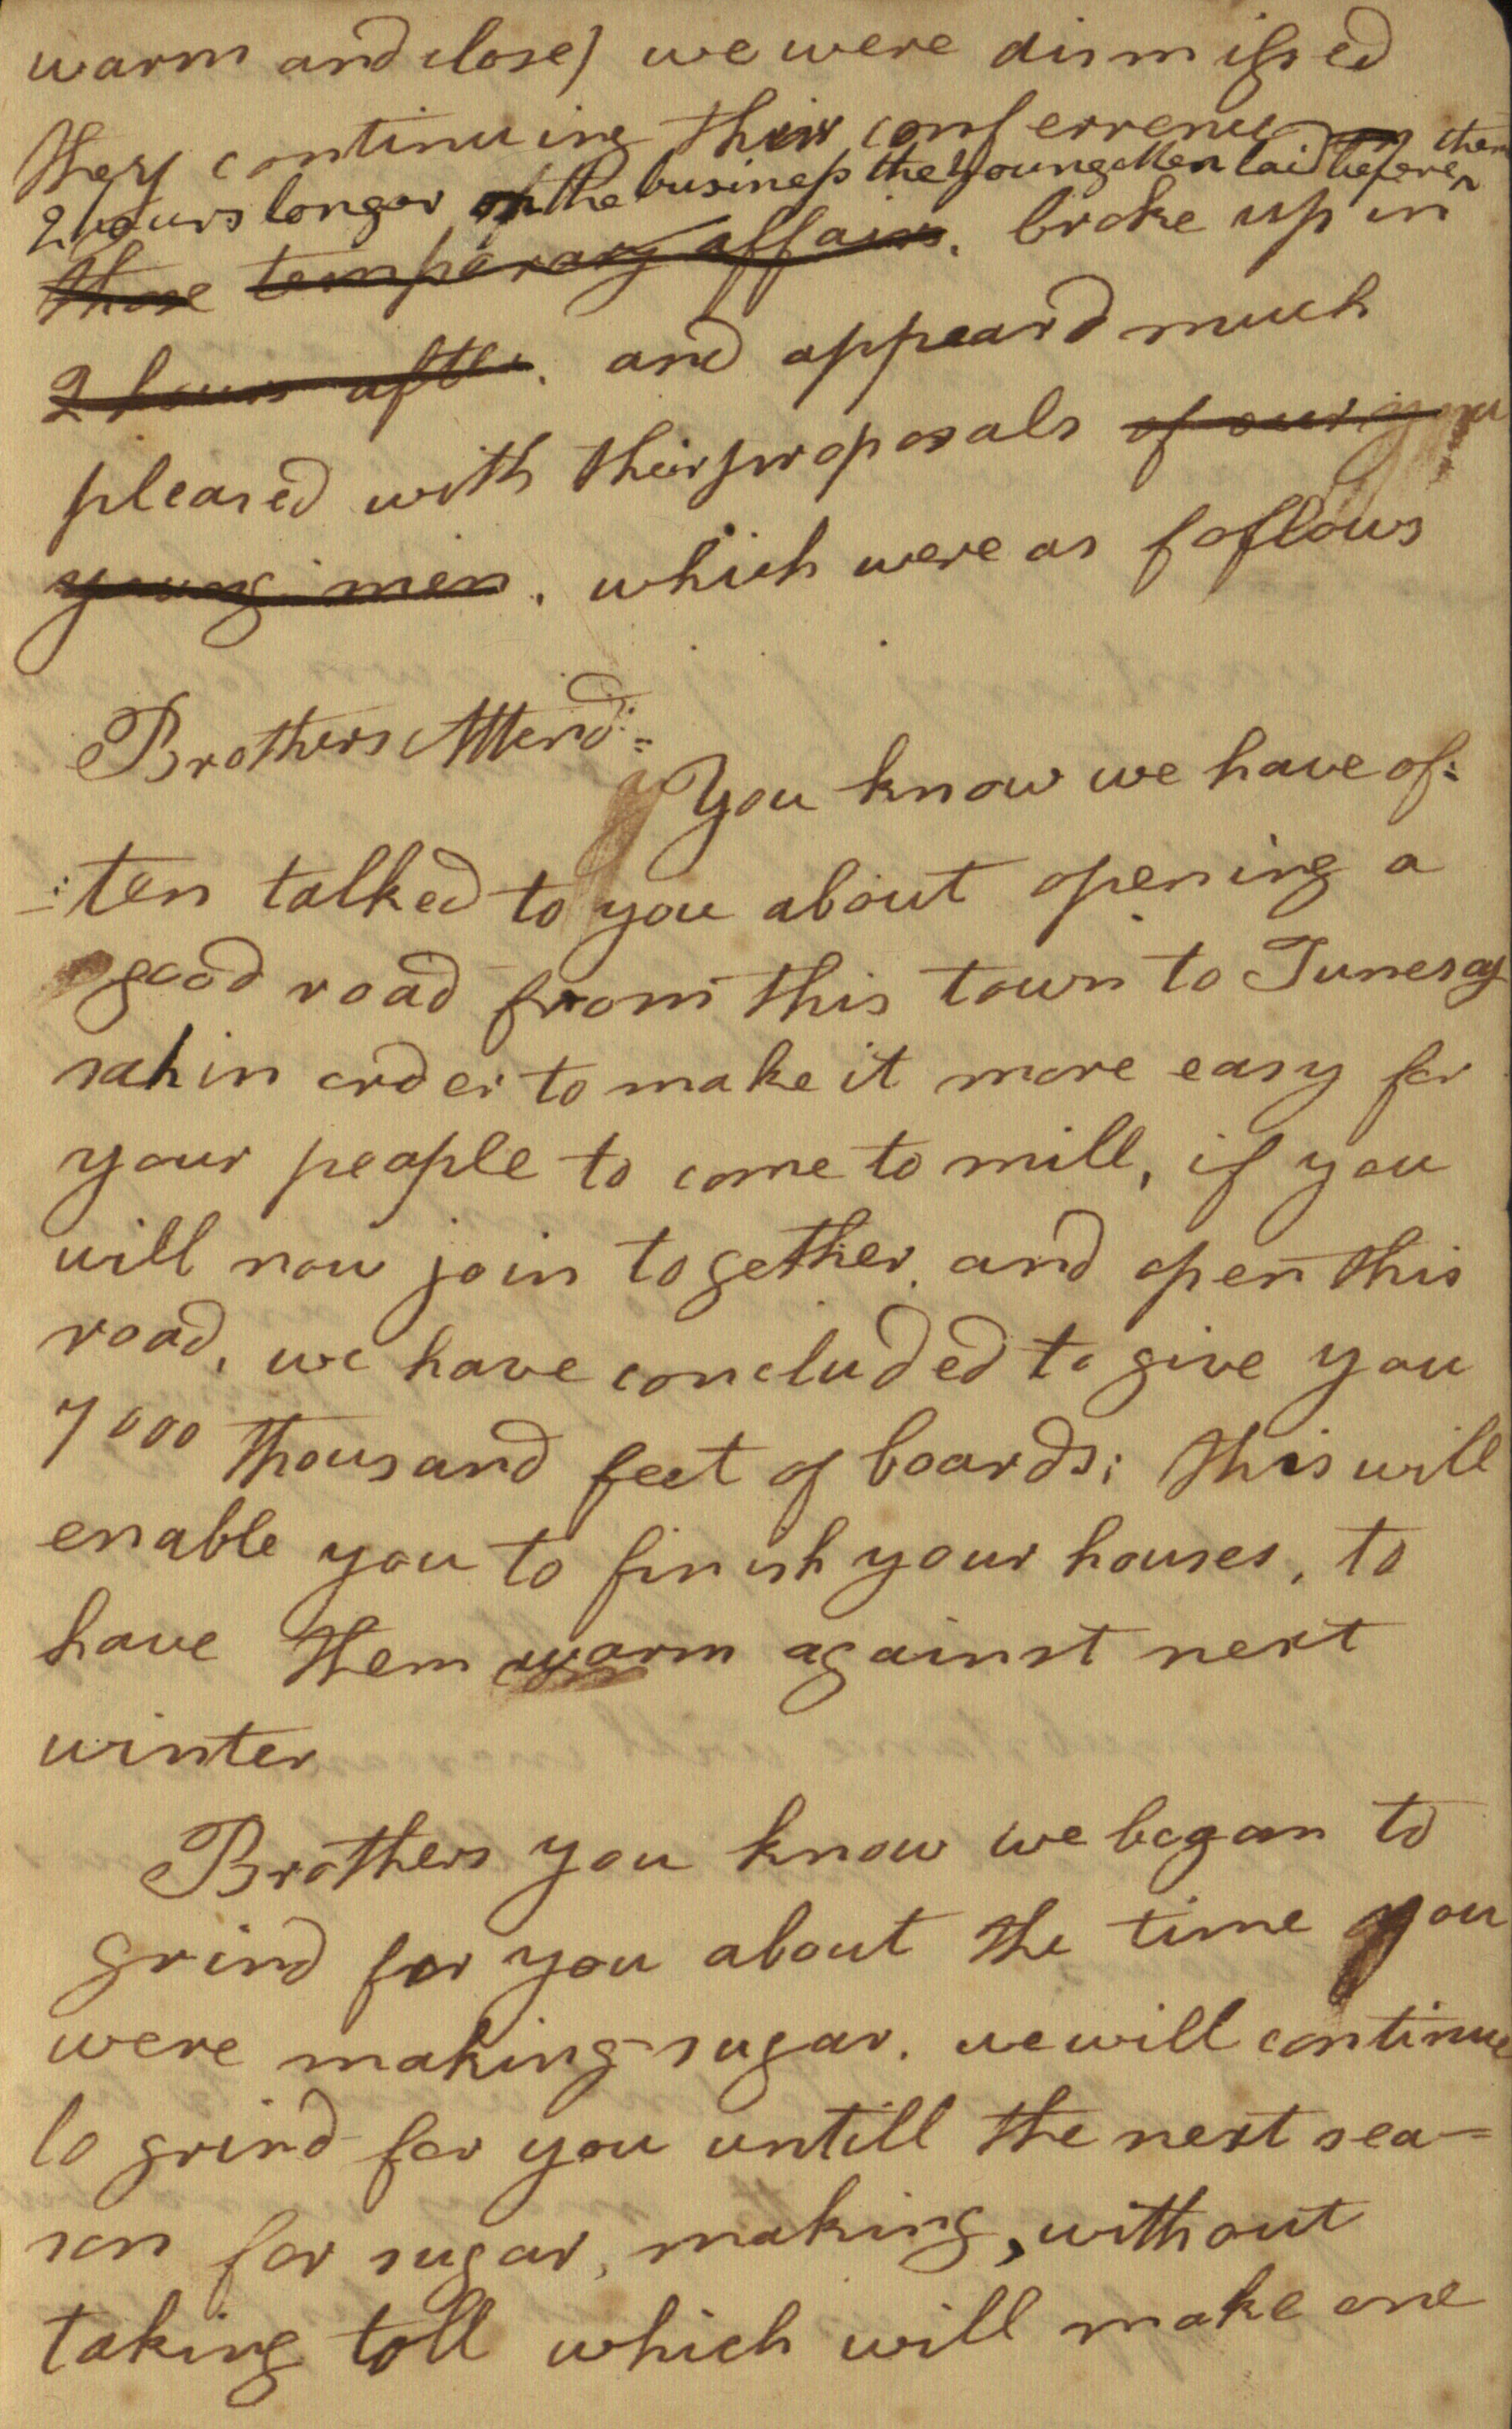 warm and close) we were dismissed
they continuing their conferrence
2 hours longer on the business the young Men laid before them
those temporary affairs. broke up in
2 hours after. and appeard much
pleased with their proposals of our
young men. which were as follows
Brothers Attend:=
You know we have of:
:ten talked to you about opening a
good road from this town to Tunesas
sah in order to make it more easy for
your people to come to mill, if you
will now join together and open this
road, we have concluded to give you
7000 thousand feet of boards; this will
enable you to finish your houses, to
have them warm against next
winter
Brothers you know we began to
grind for you about the time you
were making sugar. we will continue
to grind for you untill the next sea=
son for sugar, making, without
taking toll which will make one